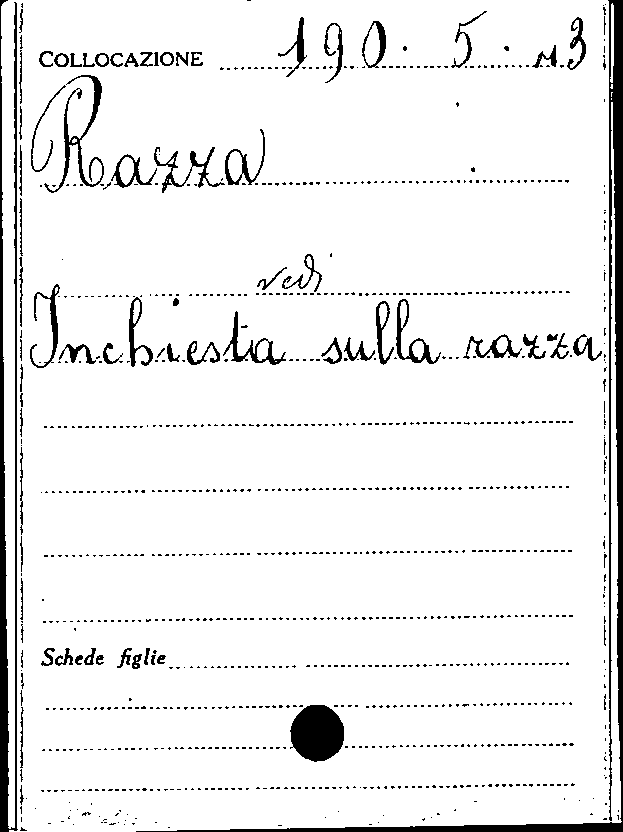 COLLOCAZIONE 190. 5. n3
Razza
vedi
Inchiesta sulla razza
Schede figlie